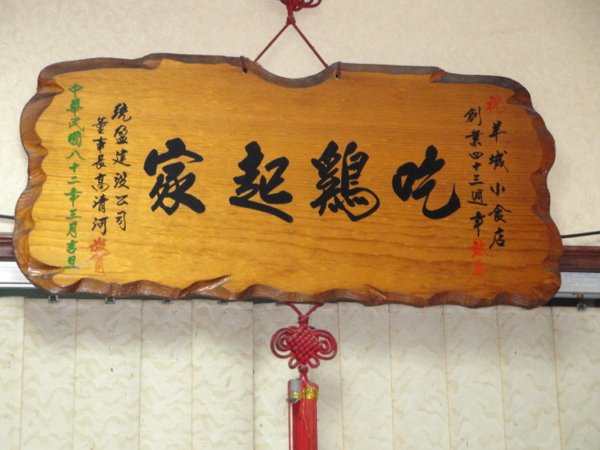 祝羊城小食店
創業四十三週年
吃鷄起家
統盈建設公司
董事長高清河敬賀
中華民國八十二年三月吉旦